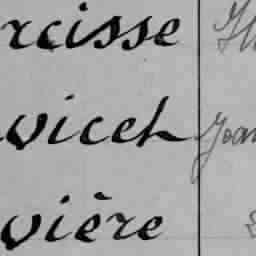 rcisse
vicet Jean
vière